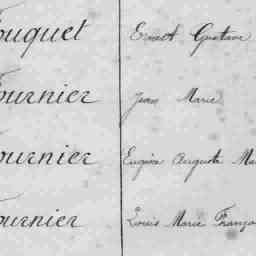 Fouquet Ernest Gustave
Fournier Jean Marie
Fournier Eugène Auguste Ma
Fournier Louis Marie Franço